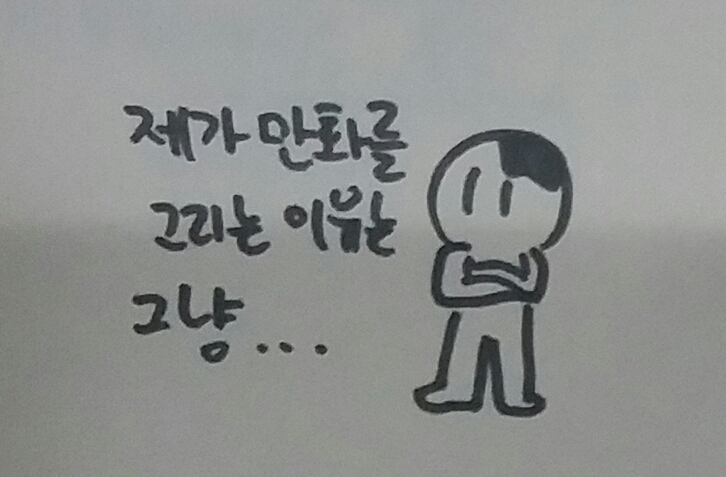 제가 만화를
그리는 이유는
그냥...